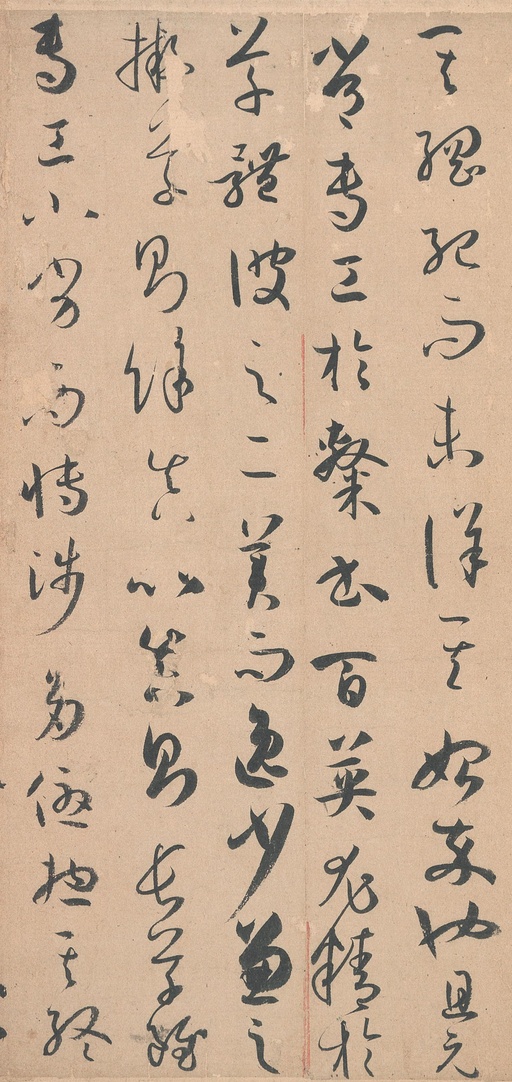 其綱紀而未詳其始卒也且元
常專工於隸書百英尤精於
草體彼之二美而逸少兼之
擬草則餘真比真則長草雖
專工小劣而博涉多優摠其終